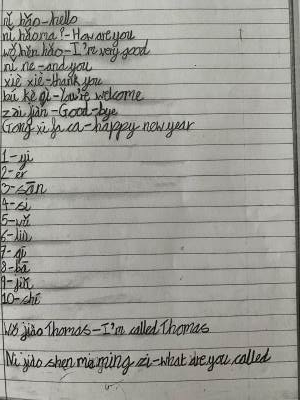 nǐ hǎo-hello
nǐ hǎoma?-How are you
wǒ hěn hǎo-I'm very good
nǐ ne-and you
xiè xiè-thank you
bú kè qì-You're welcome
zài jiàn-Good-bye
Gong xi fa ca-happy new year
1-yi
2-èr
3-sān
4-sì
5-wǔ
6-liù
7-qī
8-bā
9-jiǔ
10-shí
Wǒ jiào Thomas-I'm called Thomas
Nǐ jiào shen me ming zi-what are you called